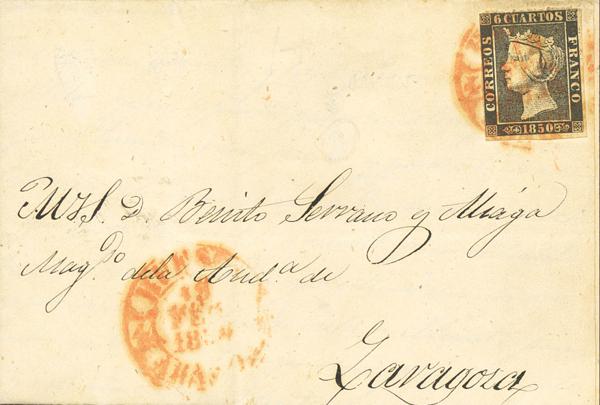 6 CUARTOS
CORREOS
FRANCO
1850
D. Benito Serrano y Aliaga
Mag.do de la Aud.a de
Zaragoza